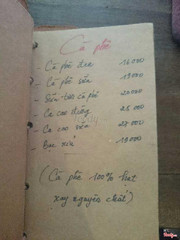 Cà phê
- Cà phê đen 16000
- Cà phê sữa 19000
- Sữa tươi cà phê 20000
- Ca cao nóng 25000
- Ca cao sữa 28000
- Bạc xỉu 19000
(Cà phê 100% hạt
xay nguyên chất)